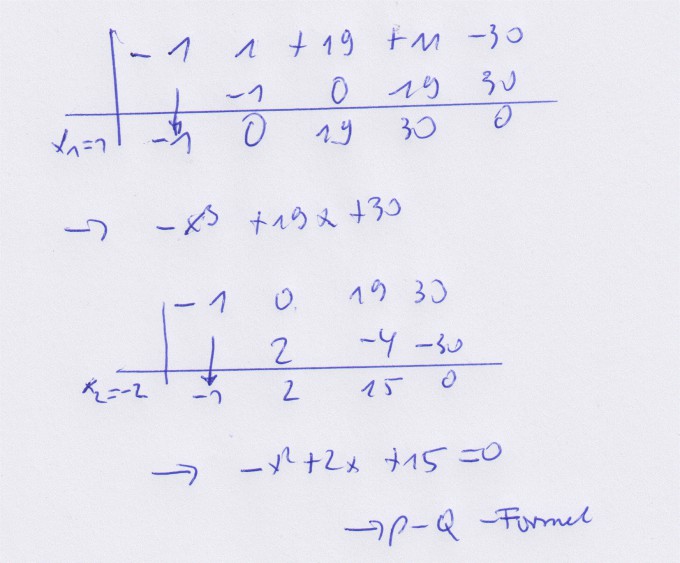 -1 1 +19 +11 -30
-1 0 19 30
x₁=1 -1 0 19 30 0
→ -x³ +19x +30
-1 0 19 30
2 -4 -30
x₂=-2 -1 2 15 0
→ -x²+2x +15 =0
→ p-Q-Formel